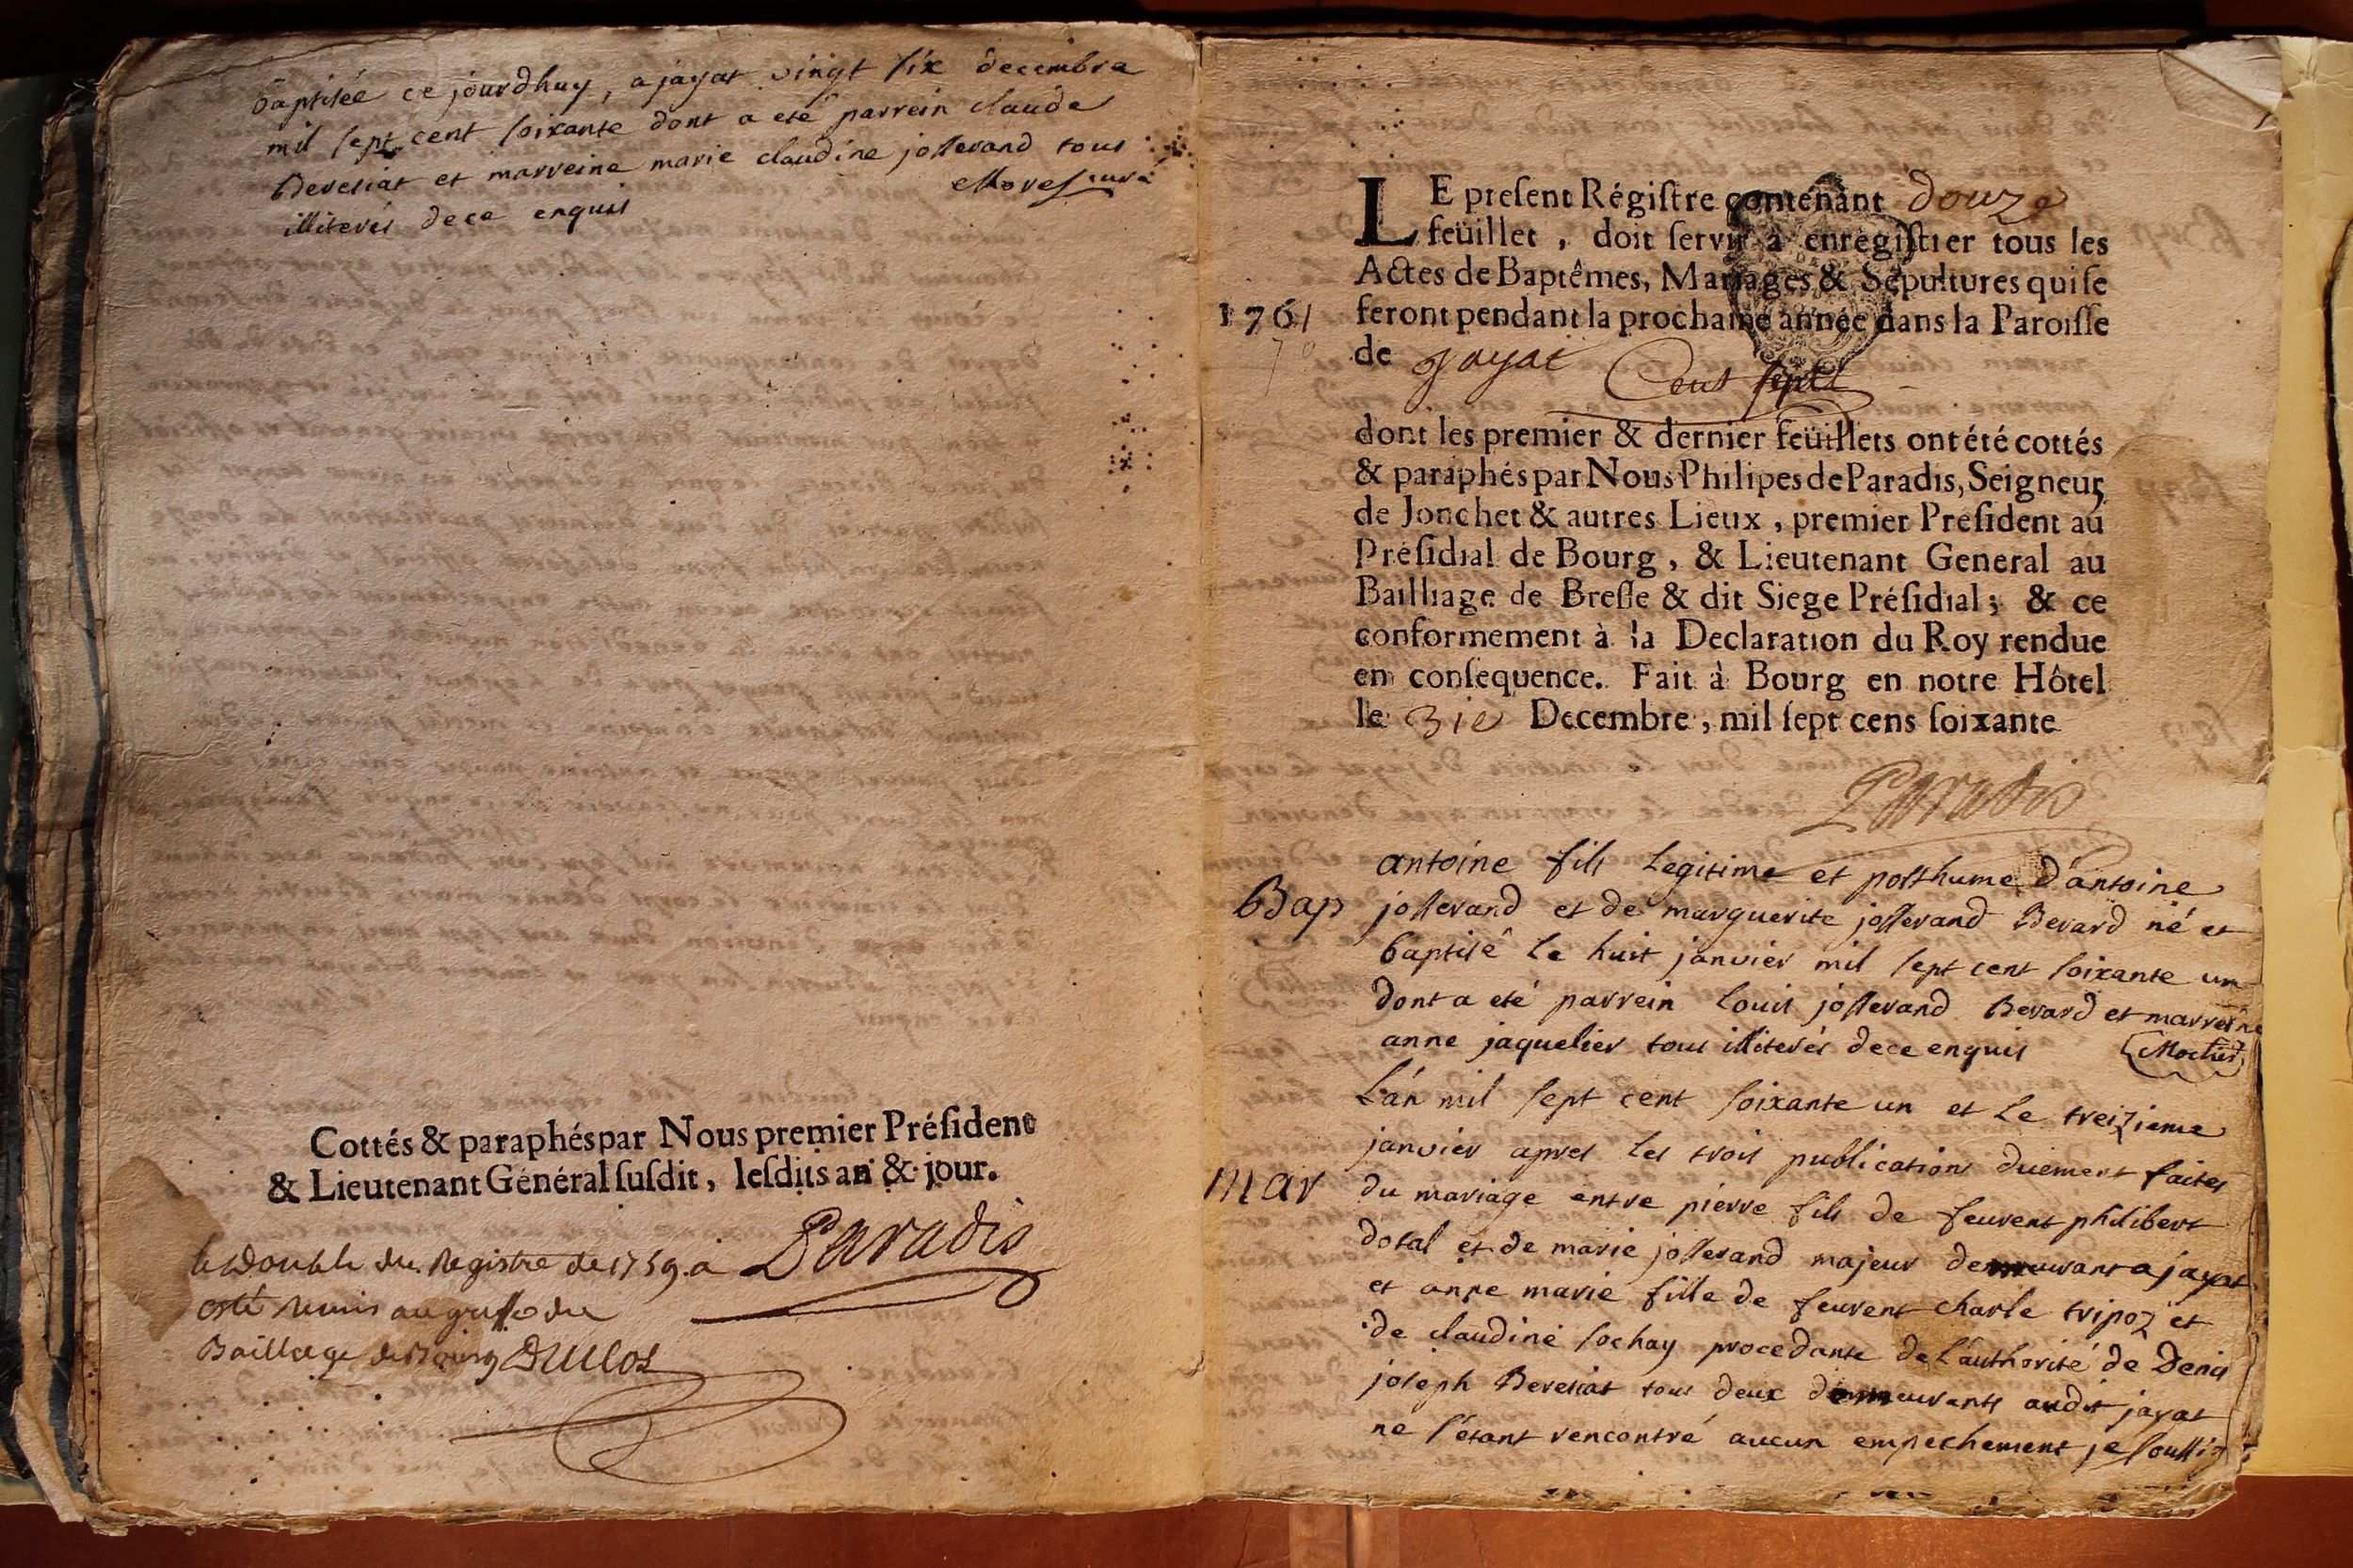 baptisée ce jourdhuy, a jayat vingt six decembre
mil sept cent soixante dont a eté parrein claude
Beresiat et marreine marie claudine josserand tous
illiterés de ce enquis
curé
Cottés & paraphés par Nous premier Présidenc
& Lieutenant Général susdit, lesdits an & jour.
Paradis
le double du Registre de 1759. a
esté remis au greffe du
Bailliage de Bourg
LE present Régistre contenant douze
feüillet, doit servir à enregistrer tous les
Actes de Baptêmes, Mariages & Sépultures qui se
1761
feront pendant la prochaine année dans la Paroisse
de Jayat
Cent sept
dont les premier & dernier feüillets ont été cottés
& paraphés par Nous Philipes de Paradis, Seigneur
de Jonchet & autres Lieux, premier President au
Présidial de Bourg, & Lieutenant General au
Bailliage de Bresse & dit Siege Présidial; & ce
conformement à la Declaration du Roy rendue
en consequence. Fait à Bourg en notre Hôtel
le 31e Decembre, mil sept cens soixante
Paradis
antoine fils legitime et posthume d'antoine
Bap
josserand et de marguerite josserand Berard né et
baptisé le huit janvier mil sept cent soixante un
dont a eté parrein louis josserand Berard et marreine
anne jaquelier tous illiterés de ce enquis
L'an mil sept cent soixante un et le treizieme
janvier apres les trois publications duement faites
Mar
du mariage entre pierre fils de feurent philibert
dotal et de marie josserand majeur demeurant a jayat
et anne marie fille de feurent charle tripoz et
de claudine sochay procedante de l'authorité de Denis
joseph Beresiat tous deux demeurants audit jayat
ne s'étant rencontré aucun empechement je soussig